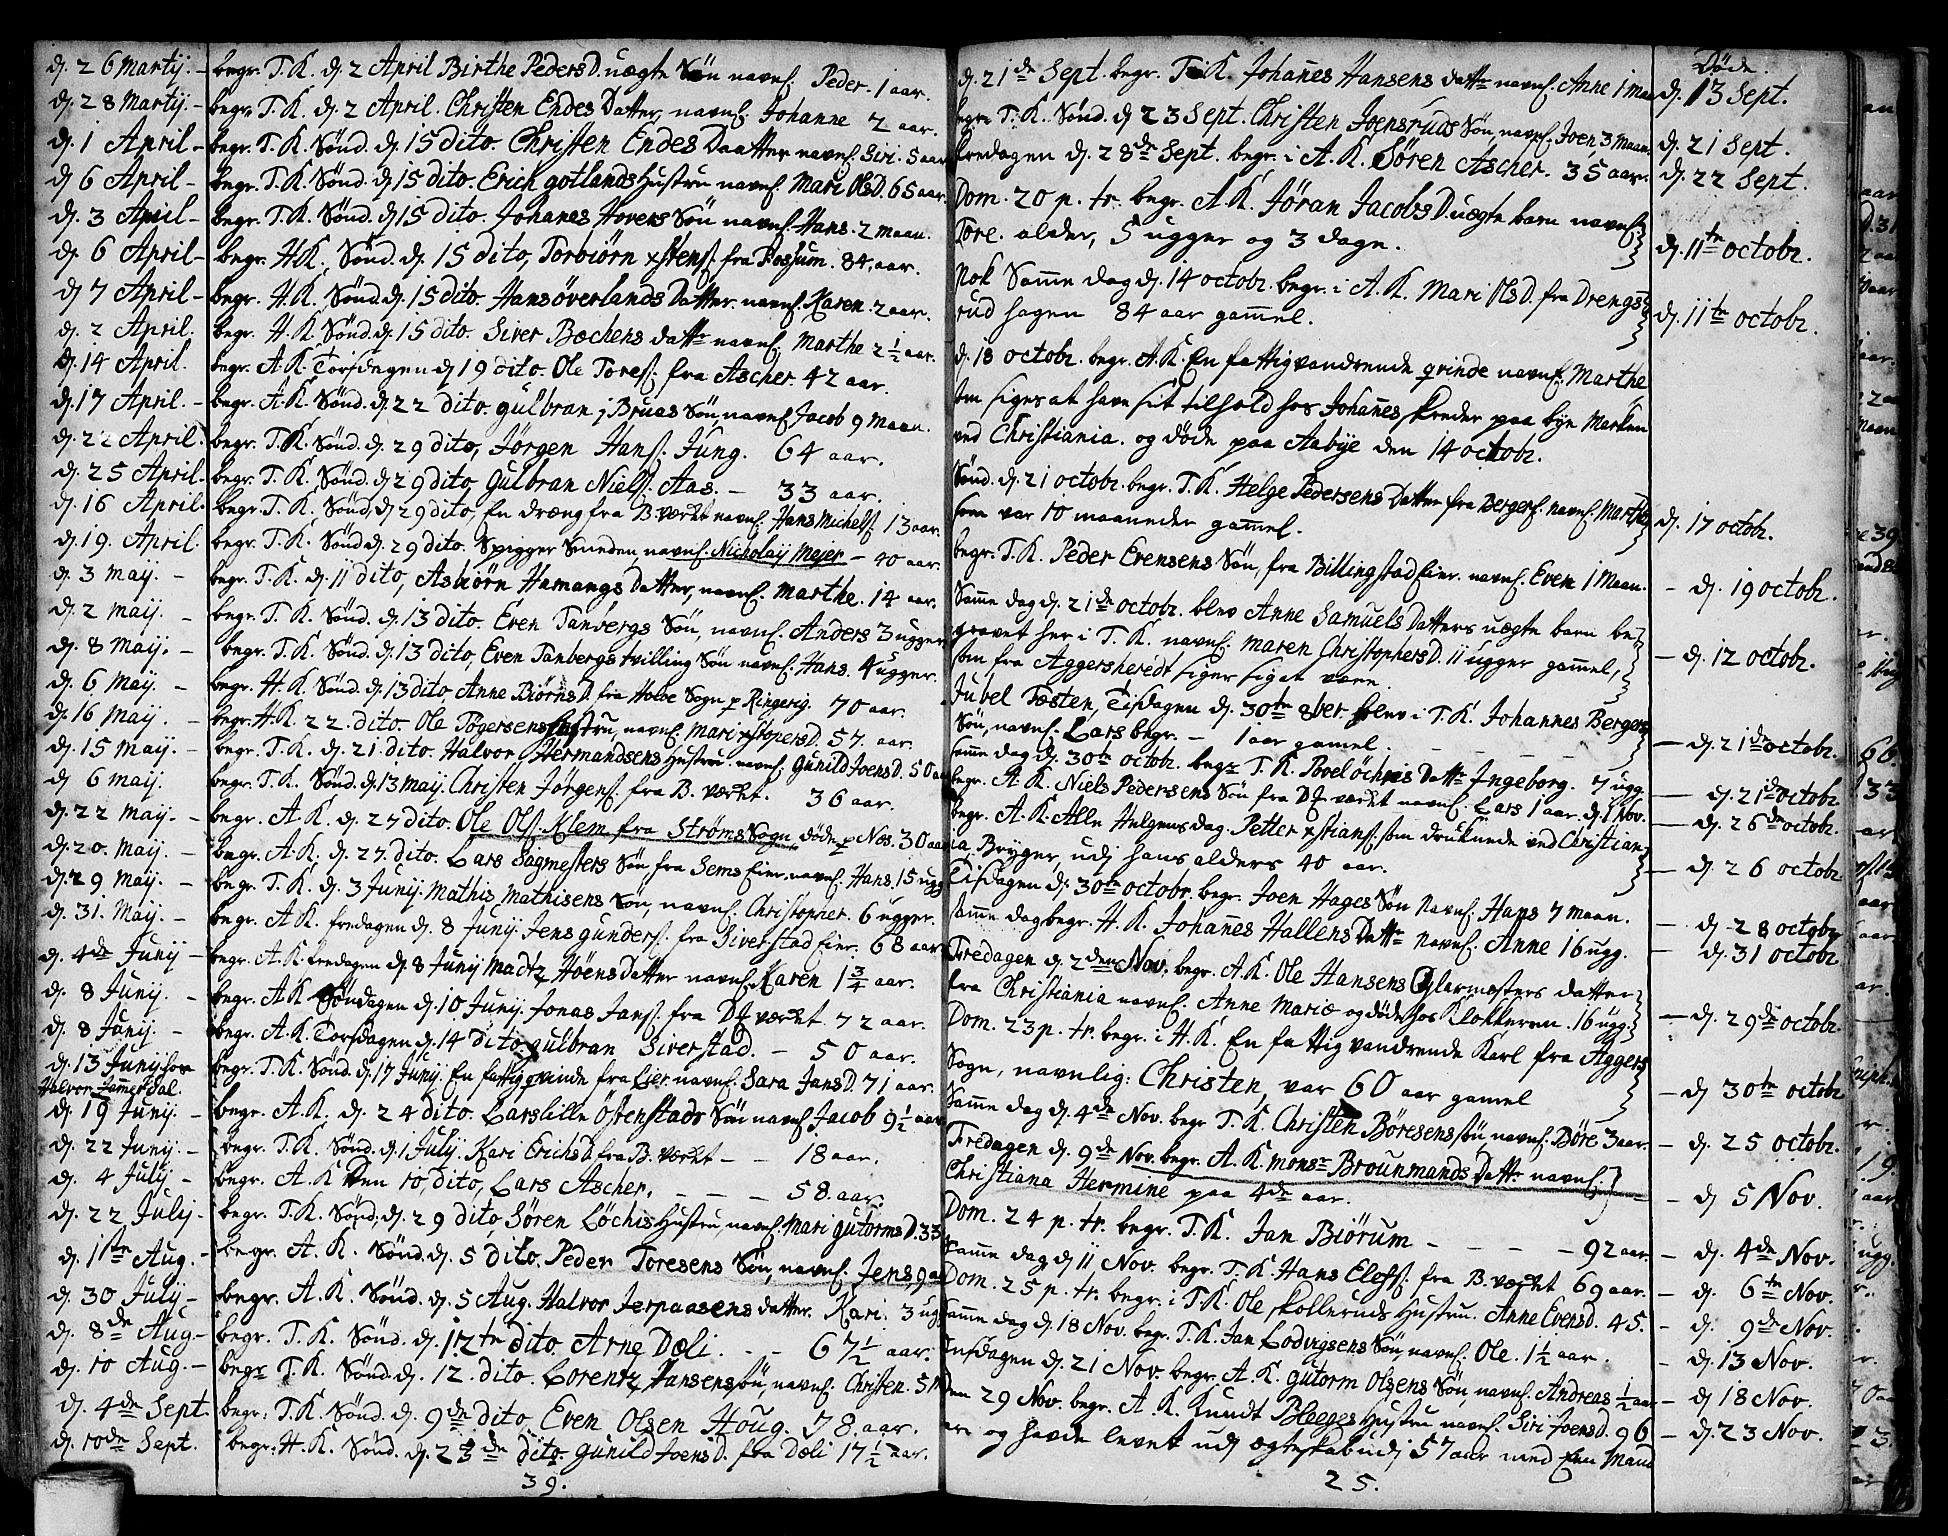 d. 26 Martij. – begr. T.K. d. 2 April Birthe PedersD. uægte Søn navnl. Peder 1 aar.
d. 28 Martij. – begr. T.K. d. 2 April. Christen Endes Datter, navnl. Johanne 2 aar.
d. 1 April – begr. T.K. Sønd. d. 15 dito. Christen Endes Daatter navnl. Siri. 5 aar
d. 6 April – begr. T.K. Sønd. d. 15 dito. Erich gotlands Hustru navnl. Mari OlsD. 65 aar.
d. 3 April – begr. T.K. Sønd. d. 15 dito. Johanes Hovers Søn navnl. Hans. 2 maan.
d. 6 April – begr. H.K. Sønd. d. 15 dito, Torbiörn xstens. fra Possum. 84 aar.
d. 7 April – begr. H.K. Sønd. d. 15 dito. Hans överlands Datter. navnl. Karen. 2 aar.
d. 2 April. begr. H.K. Sønd. d. 15 dito. Siver Bochens datter navnl. Marthe 2 1/2 aar.
d. 14 April. begr. A.K. Torsdagen d. 19 dito. Ole Tores. fra Ascher. 42 aar.
d. 17 April. – begr. A.K. Sønd. d. 22 dito. gulbran j Bruas Søn, navnl. Jacob 9 Maan.
d. 22 April. begr. T.K. Sønd. d. 29 dito, Jörgen Hans. Jung. 64 aar.
d. 25 April. begr. T.K. Sønd. d. 29 dito Gulbran Niels. Aas. – 33 aar.
d. 16 April. begr. T.K. Sønd. d. 29 dito, En dræng fra B. værket navnl. Hans Michels. 13 aar.
d. 19. April. begr. T.K. Sønd. d. 29 dito. Spigger Smeden navnl. Nicholaij Majer – 40 aar.
d. 3 maij. – begr. T.K. d. 11 dito, Asbiörn Hamangs Datter, navnl. marthe. 14 aar.
d. 2 maij. – begr. T.K. Sønd. d. 13 dito. Even Tanbergs Søn, navnl. Anders 3 ugger.
d. 8 Maij. – begr. T.K. Sønd. d. 13 dito, Even Tanbergs tvilling Søn navnl. Hans. 4 ugger.
d. 6 Maij. – begr. H.K. Sønd. d. 13 dito Anne BiörnsD. fra Hole Sogn p Ringerig. 70 aar.
d. 16 Maij – begr. H.K. 22. dito. Ole Tögersens hustru, navnl. Mari xstopersD. 57. aar.
d. 15 Maij. – begr. T.K. d. 21. dito. Halvor Hermandsens Hustru. navnl. Gunild JoensD. 50 aar
d. 6 maij. begr. T.K. Sønd. d. 13 maij. Christen Jörgens. fra B. værket. 36 aar.
d. 22 Maij. – begr. A.K. d. 27 dito. Ole Ols. Klem, fra Ströms Sogn, döde p Nes. 30 aar
d. 20. Maij. – begr. A.K. d. 27. dito. Lars Sagmesters Søn fra Sems Eier, navnl. Hans. 15 ugg
d. 29 Maij. – begr. T.K. d. 3 Junij. Mathis Mathisens Søn, navnl. Christopher. 6 ugger.
d. 31. Maij. – begr. A.K. fredagen d. 8 Junij Jens gunders. fra Siverstad Eier. 68 aar
d. 4de Junij – begr. A.K. fredagen d. 8 Junij Madtz Höens Datter navnl. Karen 1 3/4 aar.
d. 8 Junij. – begr. A.K. Söndagen d. 10 Junij. Jonas Jans. fra DJ værket 72 aar.
d. 8 Junij. – begr. A.K. Torsdagen d. 14 dito gulbran Siverstad. – 50 aar.
d. 13 Junij hos Halvor Jamerdal. begr. T.K. Sønd. d. 17 Junij. En fattig qvinde fra Lier. navnl. Sara JansD. 71 aar.
d. 19 Junij. – begr. A.K. d. 24 dito. Lars lille Östenstads Søn navnl. Jacob 9 1/2 aar
d. 22 Junij. – begr. T.K. Sønd. d. 1 Julij. Kari ErichsD. fra B. værket – – 18 aar.
d. 4 Julij – begr. A.K. Den 10, dito, Lars Ascher. – – – 58. aar.
d. 22 Julij – begr. T.K. Sønd. d. 29 dito, Sören Löchis Hustru, navnl. Mari GutormsD. 33
d. 1ste Aug. – begr. A.K. Sønd. d. 5 dito. Peder Toresens Søn, navnl. Jens, 9 aa
d. 30 Julij – begr. A.K. Sønd. d. 5 Aug. Halvor Jerpaasens datter. Kari. 3 ug
d. 8de Aug – begr. T.K. Sønd. d. 12te dito. Arne Dæli. – – 67 1/2 aar.
d. 10 Aug. – begr T.K. Sønd. d. 12. dito. Lorentz Jansens søn, navnl. Christen. 5 M
d. 4de Sept. begr. T.K. Sønd. d. 9de dito. Even Olsen Houg. 78. aar.
d. 10de Sept. begr. H.K. Sønd. d. 23de dito. Gunild JoensD. fra Dæli 17 1/2 aar.
39.
Döde.
d. 21de Sept. begr. T.K. Johanes Hansens datter navnl. Anne 1 Maa d. 13 Sept.
begr. T.K. Sønd. d. 23 Sept. Christen Joensruds Søn, navnl. Joen 3 Maan. d. 21 Sept.
fredagen d. 28de Sept. begr. i A.K. Sören Ascher. 35 aar. d. 22 Sept.
Dom. 20 p. tr. begr. A.K. Jöran JacobsD. uægte barn navnl.
Tore. alder, 5 ugger og 3 dage. d. 11te octobr.
Nok Same dag d. 14 octobr. begr. i A.K. Mari OlsD. fra Drengs-
rud hagen 84 aar gamel. d. 11te octobr.
d. 18 octobr. begr. A.K. En fattig vandrende qvinde navnl. Marthe
som siges at have sit tilhold hos Johanes skreder paa bye Marken
ved Christiania. og döde paa Aabye den 14 octobr.
Sønd. d. 21 octobr. begr. T.K. Helge Pedersens Datter fra Berger. navnl. Marthe
som var 10 maaneder gamel. d. 17 octobr.
begr. T.K. Peder Evensens Søn, fra Billingstad Eier. navnl. Even 1 Maan. – d. 19 octobr.
Same dag d. 21de octobr. blev Anne Samuels Datters uægte barn be-
gravet her i T.K. navnl. Maren ChristophersD. 11 ugger gamel,
som fra Aggersheredt siger sig at være. – d. 12 octobr.
Jubel Festen, Tisdagen d. 30te 8ber blev i T.K. Johannes Bergers
Søn, navnl. Lars begr. – 1 aar gamel. – d. 21de octobr.
same dag d. 30te octobr. begr T.K. Povel Öchris Datter Ingeborg. 7 ugg. – d. 21de octobr.
begr. A.K. Niels Pedersens Søn fra DJ værket navnl. Lars 1 aar. d. 1 Nov. – d. 26de octobr.
begr. A.K. Alle Helgens dag. Petter xstians. som druknede ved Christian-
ia Brygge, udj hans alders 40 aar. – d. 26 octobr.
Tisdagen d. 30te octobr. begr. Joen Hages Søn Navnl. Hans 7 maan. – d. 28 octobr
same dag begr. H.K. Johanes Hallens Datter Navnl. Anne 16 ugg. – d. 31 octobr
Fredagen d. 2den Nov. begr. A.K. Ole Hansens Glarmesters datter
fra Christiania navnl. Anne Mariæ og döde hos Klokkeren. 16 ugg. – d. 29de octobr.
Dom. 23 p. tr. begr. i H.K. En fattig vandrende Karl fra Aggers
Sogn, navnlig: Christen, var 60 aar gamel – d. 30te octobr
Same dag d. 4de Nov. begr T.K. Christen Böresens søn, navnl. Böre 3 aar. – d. 25 octobr.
Fredagen d. 9de Nov. begr. A.K. monsr Brounmands Datter navnl.
Christiana Hermine paa 4de aar. – d. 5 Nov.
Dom. 24 p. tr. begr. T.K. Jan Biörum – – – – 92 aar. – d. 4de Nov.
Same dag d. 11 Nov. begr. T.K. Hans Elefs. fra B. værket 69 aar. – d. 6te Nov.
Dom. 25 p. tr. begr. i T.K. Ole Skolleruds Hustru. Anne EvensD. 45. – d. 9de Nov.
same dag d. 18 Nov. begr. T.K. Jan Lodvigsens Søn, navnl. Ole. 1 1/2 aar. – d. 13 Nov.
Onsdagen d. 21 Nov. begr. A.K. Gutorm Olsens Søn navnl. Andreas 1/2 aar – d. 18 Nov.
den 29 Nov. begr. A.K. Knudt Bleeges Hustru navnl. Siri JoensD. 96 – d. 23 Nov.
aar og havde levet udj ægteskab udj 57 aar med Een Mand
25.